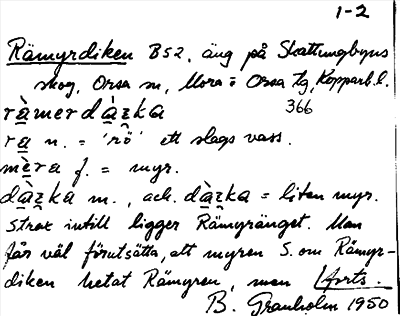 1-2
Rämyrdiken B52, äng på Skattungbyns
skog, Orsa sn, Mora o Orsa tg, Kopparb. l.
ràmerdàzka 366
ra n. = 'rö' ett slags vass.
mèra f. = myr.
dàzka m., ack. dàzka = liten myr.
Strax intill ligger Rämyränget. Man
får väl förutsätta, att myren S. om Rämyr-
diken hetat Rämyren, men forts.
B. Granholm 1950